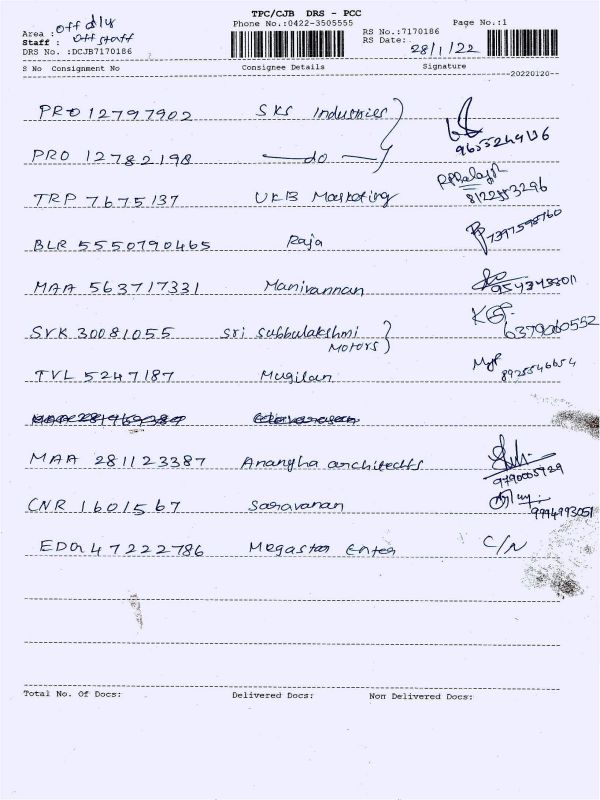 TPC/CJB DRS - PCC
Phone No.:0422-3505555 Page No.:1
Area : off dly
Staff : off staff
DRS No. :DCJB7170186
RS No.:7170186
RS Date: 28/1/22
S No Consignment No Consignee Details Signature
20220120
PRO 12797902 SKS Industries
PRO 12782198 do 9655249
TRP 7675137 UKB Marketing
BLR 5550790465 Raja
MAA 563717331 Manivannan
SVK 30081055 Sri Subbulakshmi Motors 6379060552
TVL 5247187 Mugilan 8925546654
MAA 281123387 Anangha architects 9790005929
CNR 1601567 Saravanan 9994993051
47222786 Megastar Enter C/N
Total No. Of Docs: Delivered Docs: Non Delivered Docs: